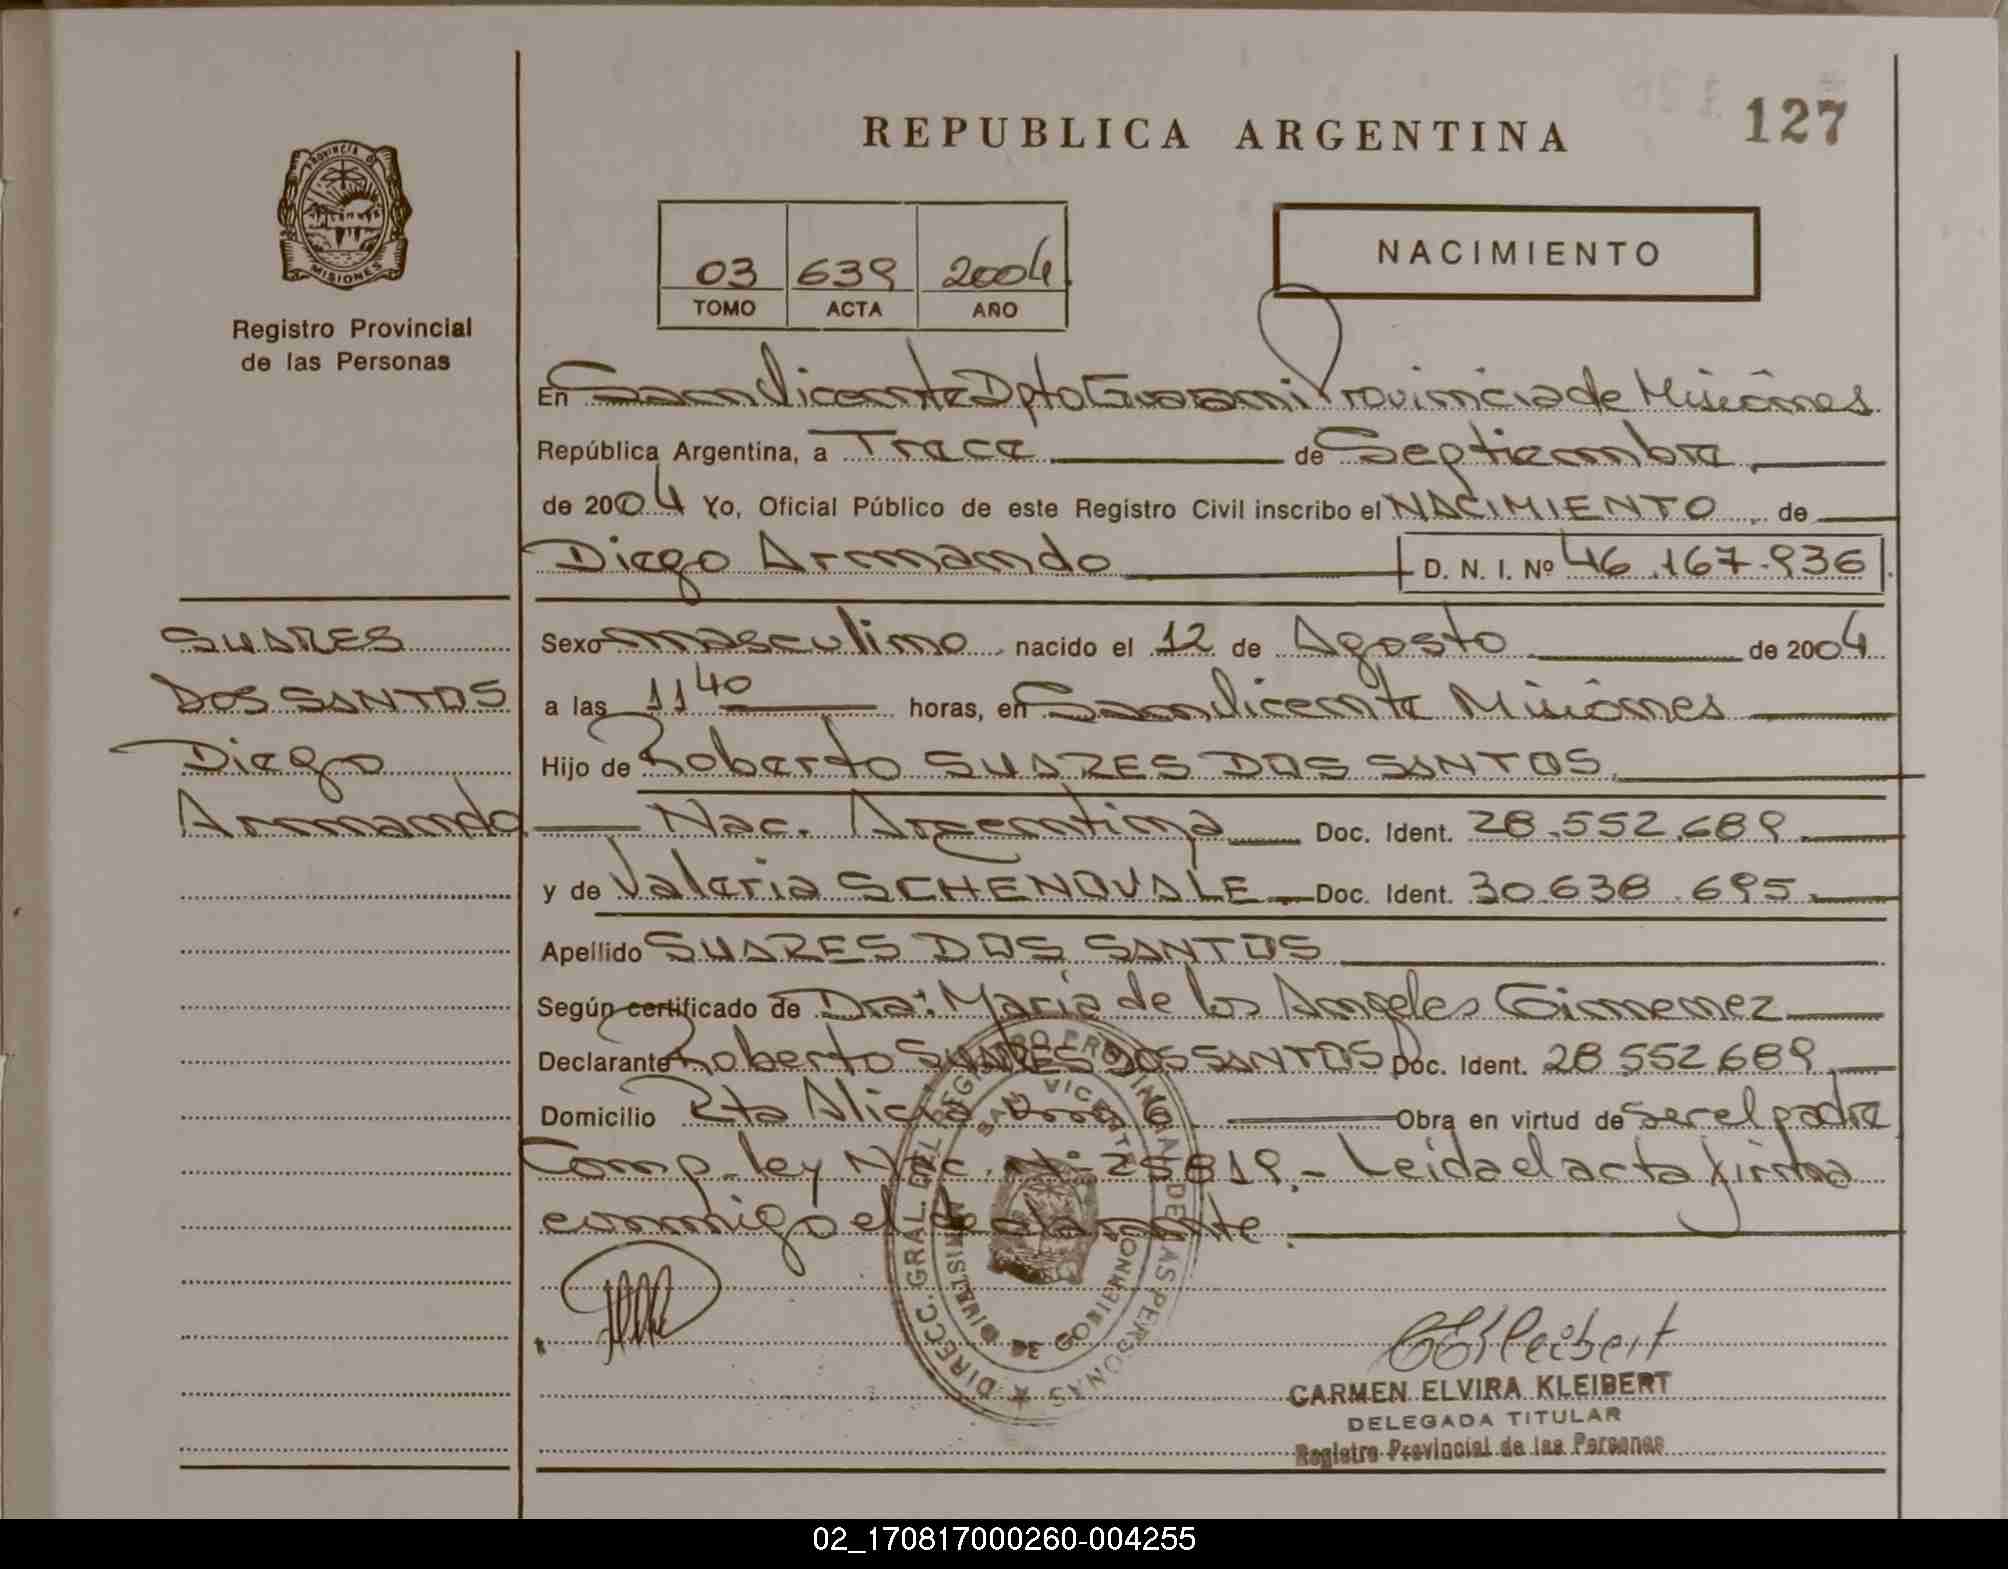 REPUBLICA ARGENTINA
127
PROVINCIA DE
MISIONES
Registro Provincial
de las Personas
03 639 2004
TOMO ACTA AÑO
NACIMIENTO
En San Vicente Dpto Guarani Provincia de Misiones
República Argentina, a Trece de Septiembre
de 2004 Yo, Oficial Público de este Registro Civil inscribo el NACIMIENTO de
Diego Armando D. N. I. Nº 46.167.936
SUARES
DOS SANTOS
Diego
Armando
Sexo masculino nacido el 12 de Agosto de 2004
a las 11 40 horas, en San Vicente Misiones
Hijo de Roberto SUARES DOS SANTOS
Nac. Argentina Doc. Ident. 28.552.689
y de Valeria Doc. Ident. 30.638.695
Apellido SUARES DOS SANTOS
Según certificado de Dra: Maria de los Angeles Gimenez
Declarante Roberto SUARES DOS SANTOS Doc. Ident. 28.552.689
Domicilio Rta Alicia Obra en virtud de ser el padre
Comp. ley Nac. Nº 25819.- Leida el acta firma
conmigo el declarante.
DIRECC. GRAL. DEL REGISTRO PROVINCIAL DE LAS PERSONAS
SAN VICENTE
MINISTERIO DE GOBIERNO
CEKleibert
CARMEN ELVIRA KLEIBERT
DELEGADA TITULAR
Registro Provincial de las Personas
02_170817000260-004255